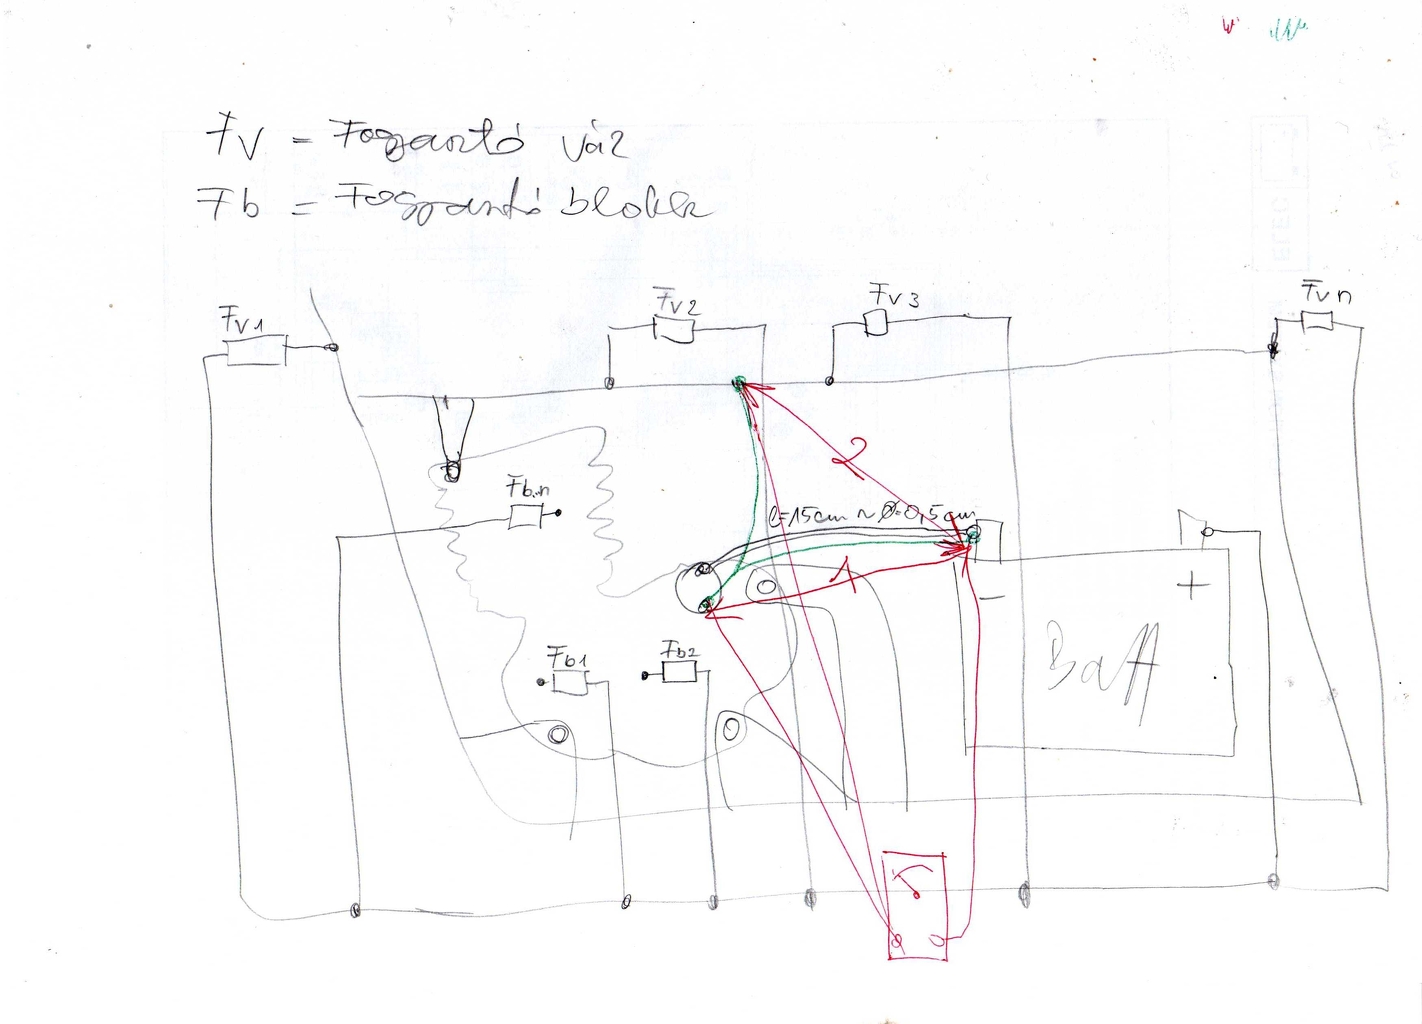 Fv = Fogyasztó váz
Fb = Fogyasztó blokk
Fv1
Fv2
Fv3
Fvn
Fb.n
2
l=15cm ~ Ø=0,5cm
1
-
+
Fb1
Fb2
Batt